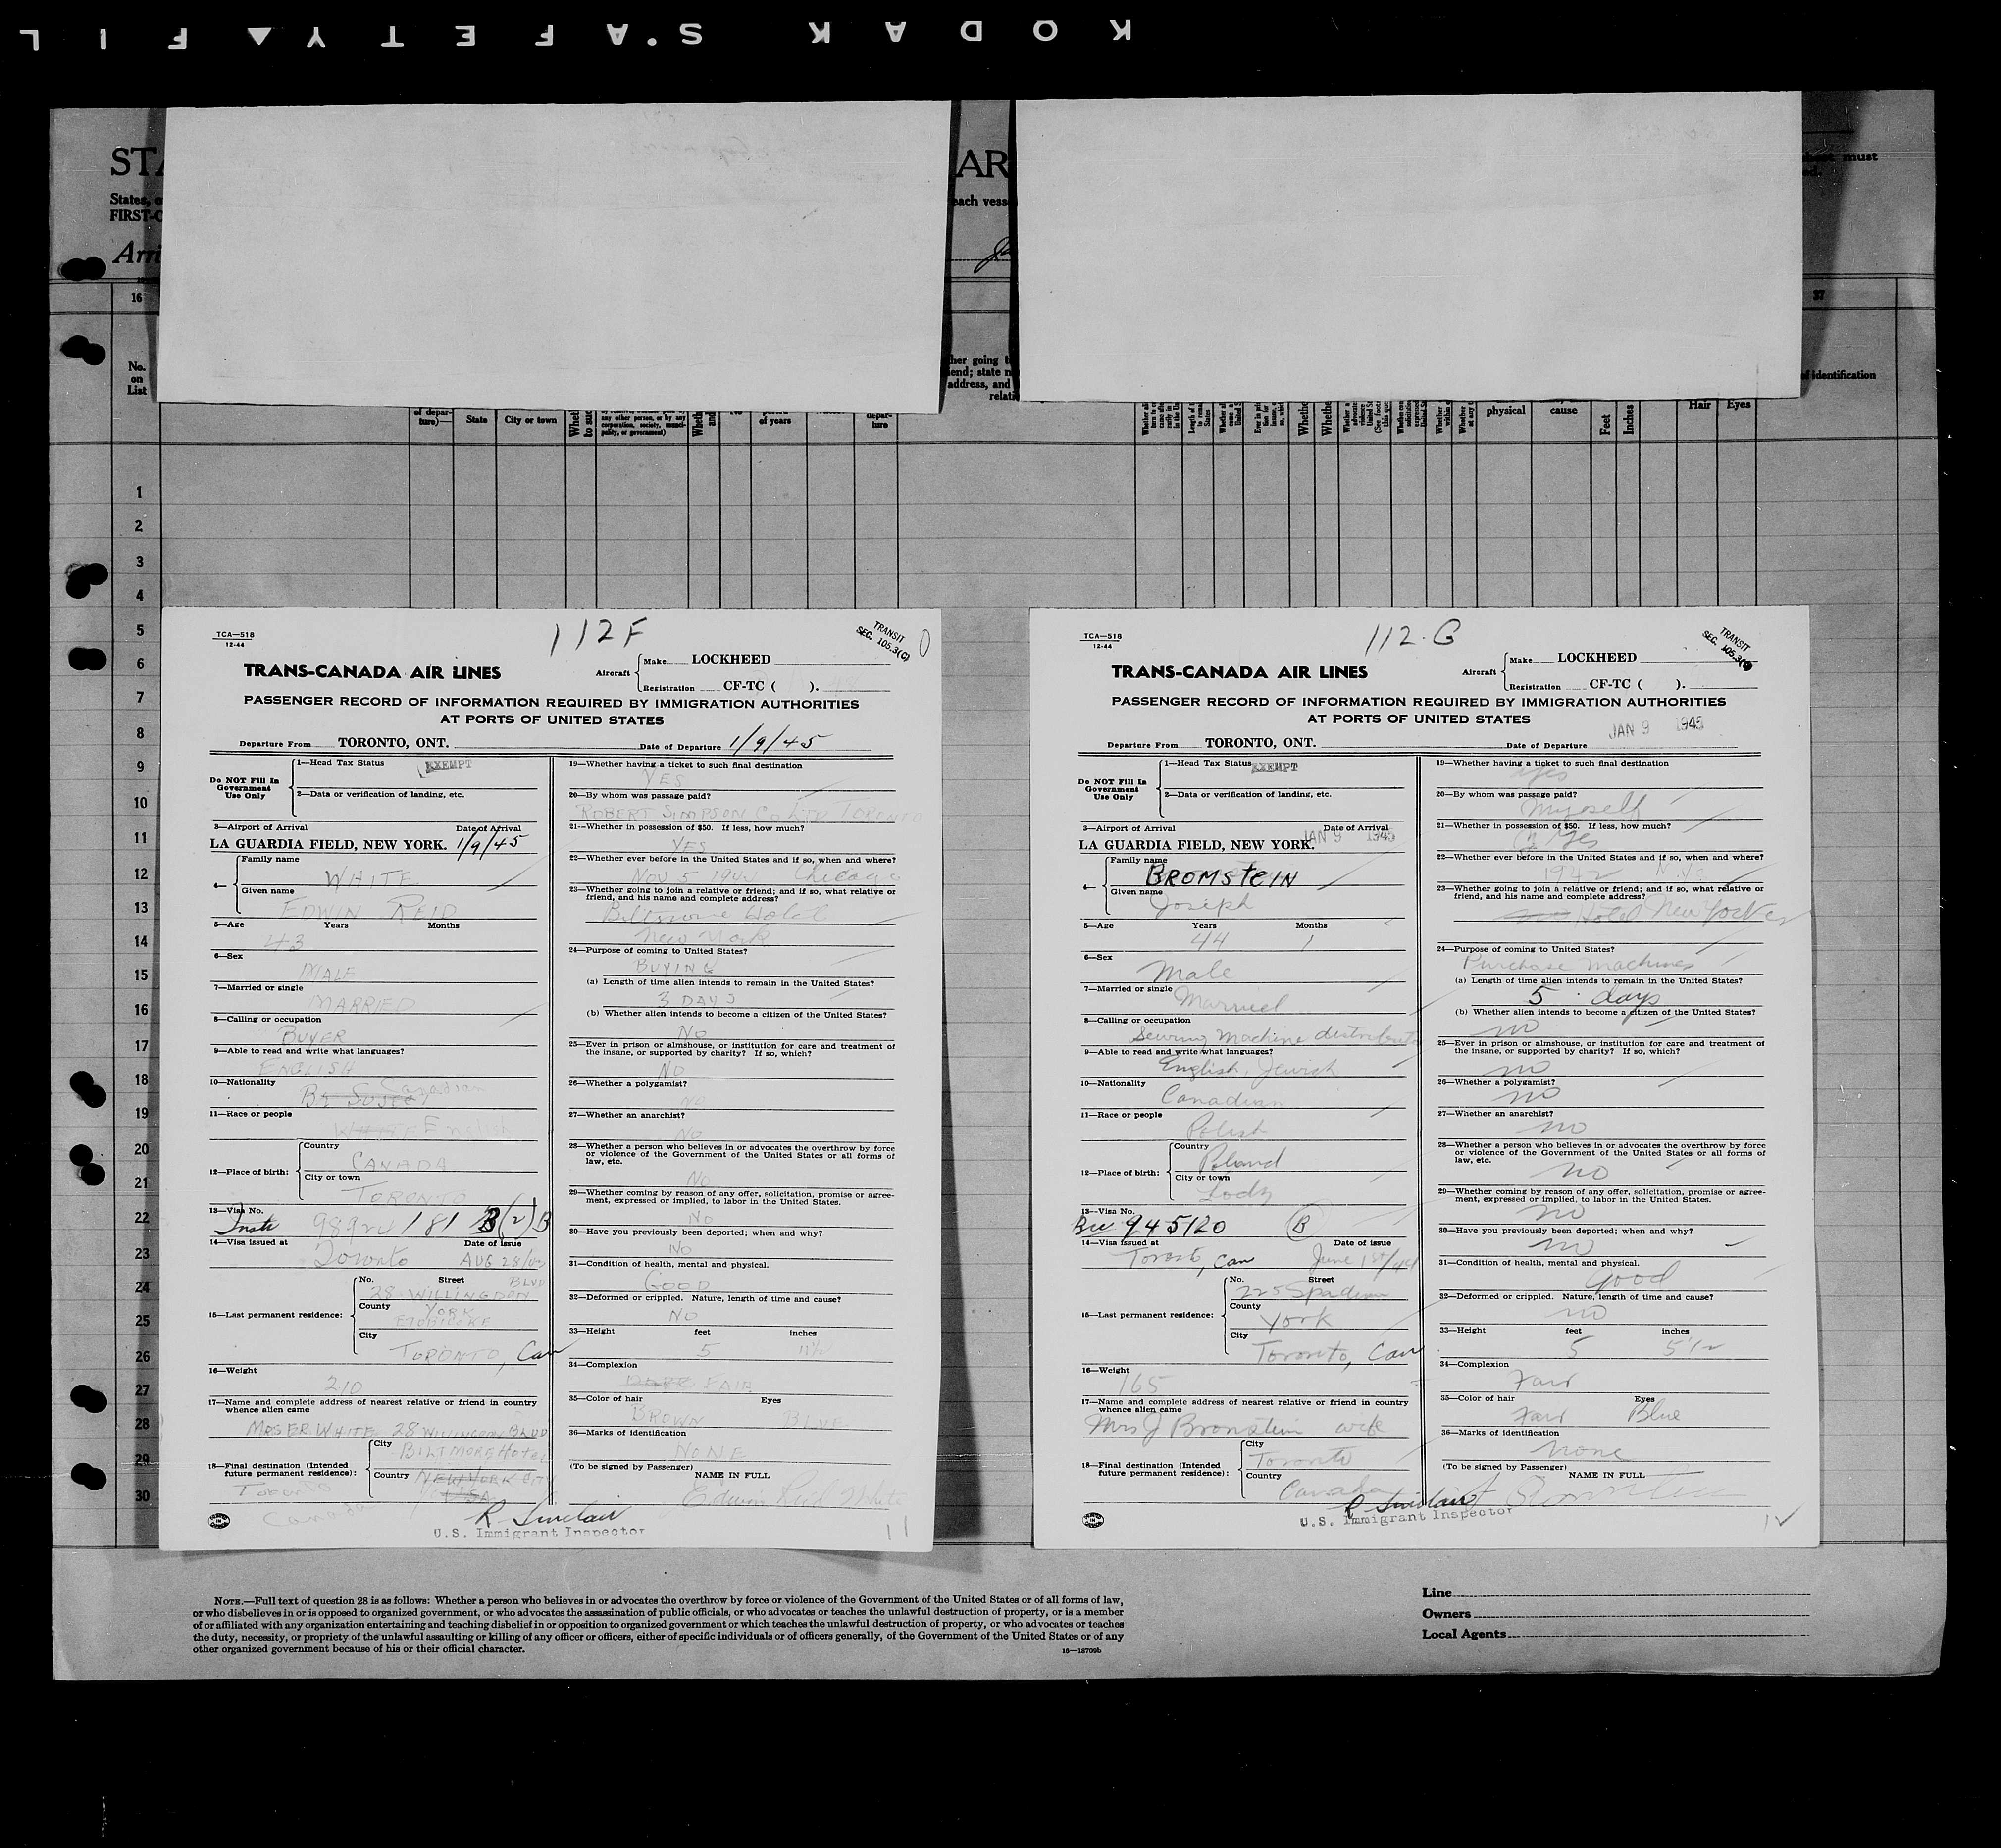 KODAK SAFETY FIL
STA
AR
sheet must
ed.
States, o
each vess
FIRST-C
Arri
16
37
No.
on
List
her going t
end; state n
address, and
relati
of identification
of depar-
ture)—
State
City or town
any other person, or by any
corporation, society, munici-
pality, or government)
of years
depar-
ture
physical
cause
Feet
Inches
Hair
Eyes
1
2
3
4
5
6
7
8
9
10
11
12
13
14
15
16
17
18
19
20
21
22
23
24
25
26
27
28
29
30
TCA—518
12-44
112F
TRANSIT
SEC. 105.3(C)
TRANS-CANADA AIR LINES
Aircraft
Make LOCKHEED
Registration CF-TC ( ).
PASSENGER RECORD OF INFORMATION REQUIRED BY IMMIGRATION AUTHORITIES
AT PORTS OF UNITED STATES
Departure From TORONTO, ONT. Date of Departure 1/9/45
Do NOT Fill In
Government
Use Only
1—Head Tax Status EXEMPT
2—Data or verification of landing, etc.
3—Airport of Arrival Date of Arrival
LA GUARDIA FIELD, NEW YORK. 1/9/45
4—
Family name
WHITE
Given name
EDWIN REID
5—Age Years Months
43
6—Sex
MALE
7—Married or single
MARRIED
8—Calling or occupation
BUYER
9—Able to read and write what languages?
ENGLISH
10—Nationality
Canadian
11—Race or people
WHITE English
12—Place of birth:
Country
CANADA
City or town
TORONTO
13—Visa No.
181 B(2) B
14—Visa issued at Date of issue
Toronto AUG 28/
15—Last permanent residence:
No. Street BLVD
28 WILLINGDON
County YORK
ETOBICOKE
City
TORONTO, Can
16—Weight
210
17—Name and complete address of nearest relative or friend in country
whence alien came
MRS E.R. WHITE 28 WILLINGDON BLVD
18—Final destination (Intended
future permanent residence):
City
BILTMORE Hotel
Country NEW YORK CITY
USA
Toronto
Canada
R Sinclair
U.S. Immigrant Inspector
19—Whether having a ticket to such final destination
YES
20—By whom was passage paid?
ROBERT SIMPSON CO LTD TORONTO
21—Whether in possession of $50. If less, how much?
YES
22—Whether ever before in the United States and if so, when and where?
NOV 5 Chicago
23—Whether going to join a relative or friend; and if so, what relative or
friend, and his name and complete address?
Biltmore Hotel
New York
24—Purpose of coming to United States?
BUYING
(a) Length of time alien intends to remain in the United States?
3 DAYS
(b) Whether alien intends to become a citizen of the United States?
NO
25—Ever in prison or almshouse, or institution for care and treatment of
the insane, or supported by charity? If so, which?
NO
26—Whether a polygamist?
NO
27—Whether an anarchist?
NO
28—Whether a person who believes in or advocates the overthrow by force
or violence of the Government of the United States or all forms of
law, etc.
NO
29—Whether coming by reason of any offer, solicitation, promise or agree-
ment, expressed or implied, to labor in the United States.
NO
30—Have you previously been deported; when and why?
NO
31—Condition of health, mental and physical.
GOOD
32—Deformed or crippled. Nature, length of time and cause?
NO
33—Height feet inches
5 11½
34—Complexion
FAIR
35—Color of hair Eyes
BROWN BLUE
36—Marks of identification
NONE
(To be signed by Passenger)
NAME IN FULL
Edwin Reid White
11
TCA—518
12-44
112.G
TRANSIT
SEC. 105.3(C)
TRANS-CANADA AIR LINES
Aircraft
Make LOCKHEED
Registration CF-TC ( ).
PASSENGER RECORD OF INFORMATION REQUIRED BY IMMIGRATION AUTHORITIES
AT PORTS OF UNITED STATES
Departure From TORONTO, ONT. Date of Departure JAN 9 1945
Do NOT Fill In
Government
Use Only
1—Head Tax Status EXEMPT
2—Data or verification of landing, etc.
3—Airport of Arrival Date of Arrival
LA GUARDIA FIELD, NEW YORK. JAN 9 1945
4—
Family name
BROMSTEIN
Given name
Joseph
5—Age Years Months
44 1
6—Sex
Male
7—Married or single
Married
8—Calling or occupation
Sewing Machine distributor
9—Able to read and write what languages?
English, Jewish
10—Nationality
Canadian
11—Race or people
Polish
12—Place of birth:
Country
Poland
City or town
Lodz
13—Visa No.
945120 B
14—Visa issued at Date of issue
Toronto, Can June 1st/44
15—Last permanent residence:
No. Street
225 Spadina
County
York
City
Toronto, Can
16—Weight
165
17—Name and complete address of nearest relative or friend in country
whence alien came
Mrs J Bromstein wife
18—Final destination (Intended
future permanent residence):
City
Toronto
Country
Canada
R Sinclair
U.S. Immigrant Inspector
19—Whether having a ticket to such final destination
yes
20—By whom was passage paid?
Myself
21—Whether in possession of $50. If less, how much?
Yes
22—Whether ever before in the United States and if so, when and where?
1942 N.Y.
23—Whether going to join a relative or friend; and if so, what relative or
friend, and his name and complete address?
Hotel New Yorker
24—Purpose of coming to United States?
Purchase Machines
(a) Length of time alien intends to remain in the United States?
5 days
(b) Whether alien intends to become a citizen of the United States?
no
25—Ever in prison or almshouse, or institution for care and treatment of
the insane, or supported by charity? If so, which?
no
26—Whether a polygamist?
no
27—Whether an anarchist?
no
28—Whether a person who believes in or advocates the overthrow by force
or violence of the Government of the United States or all forms of
law, etc.
no
29—Whether coming by reason of any offer, solicitation, promise or agree-
ment, expressed or implied, to labor in the United States.
no
30—Have you previously been deported; when and why?
no
31—Condition of health, mental and physical.
good
32—Deformed or crippled. Nature, length of time and cause?
no
33—Height feet inches
5 5½
34—Complexion
Fair
35—Color of hair Eyes
Fair Blue
36—Marks of identification
none
(To be signed by Passenger)
NAME IN FULL
NOTE.—Full text of question 28 is as follows: Whether a person who believes in or advocates the overthrow by force or violence of the Government of the United States or of all forms of law,
or who disbelieves in or is opposed to organized government, or who advocates the assassination of public officials, or who advocates or teaches the unlawful destruction of property, or is a member
of or affiliated with any organization entertaining and teaching disbelief in or opposition to organized government or which teaches the unlawful destruction of property, or who advocates or teaches
the duty, necessity, or propriety of the unlawful assaulting or killing of any officer or officers, either of specific individuals or of officers generally, of the Government of the United States or of any
other organized government because of his or their official character.
16—18709b
Line
Owners
Local Agents